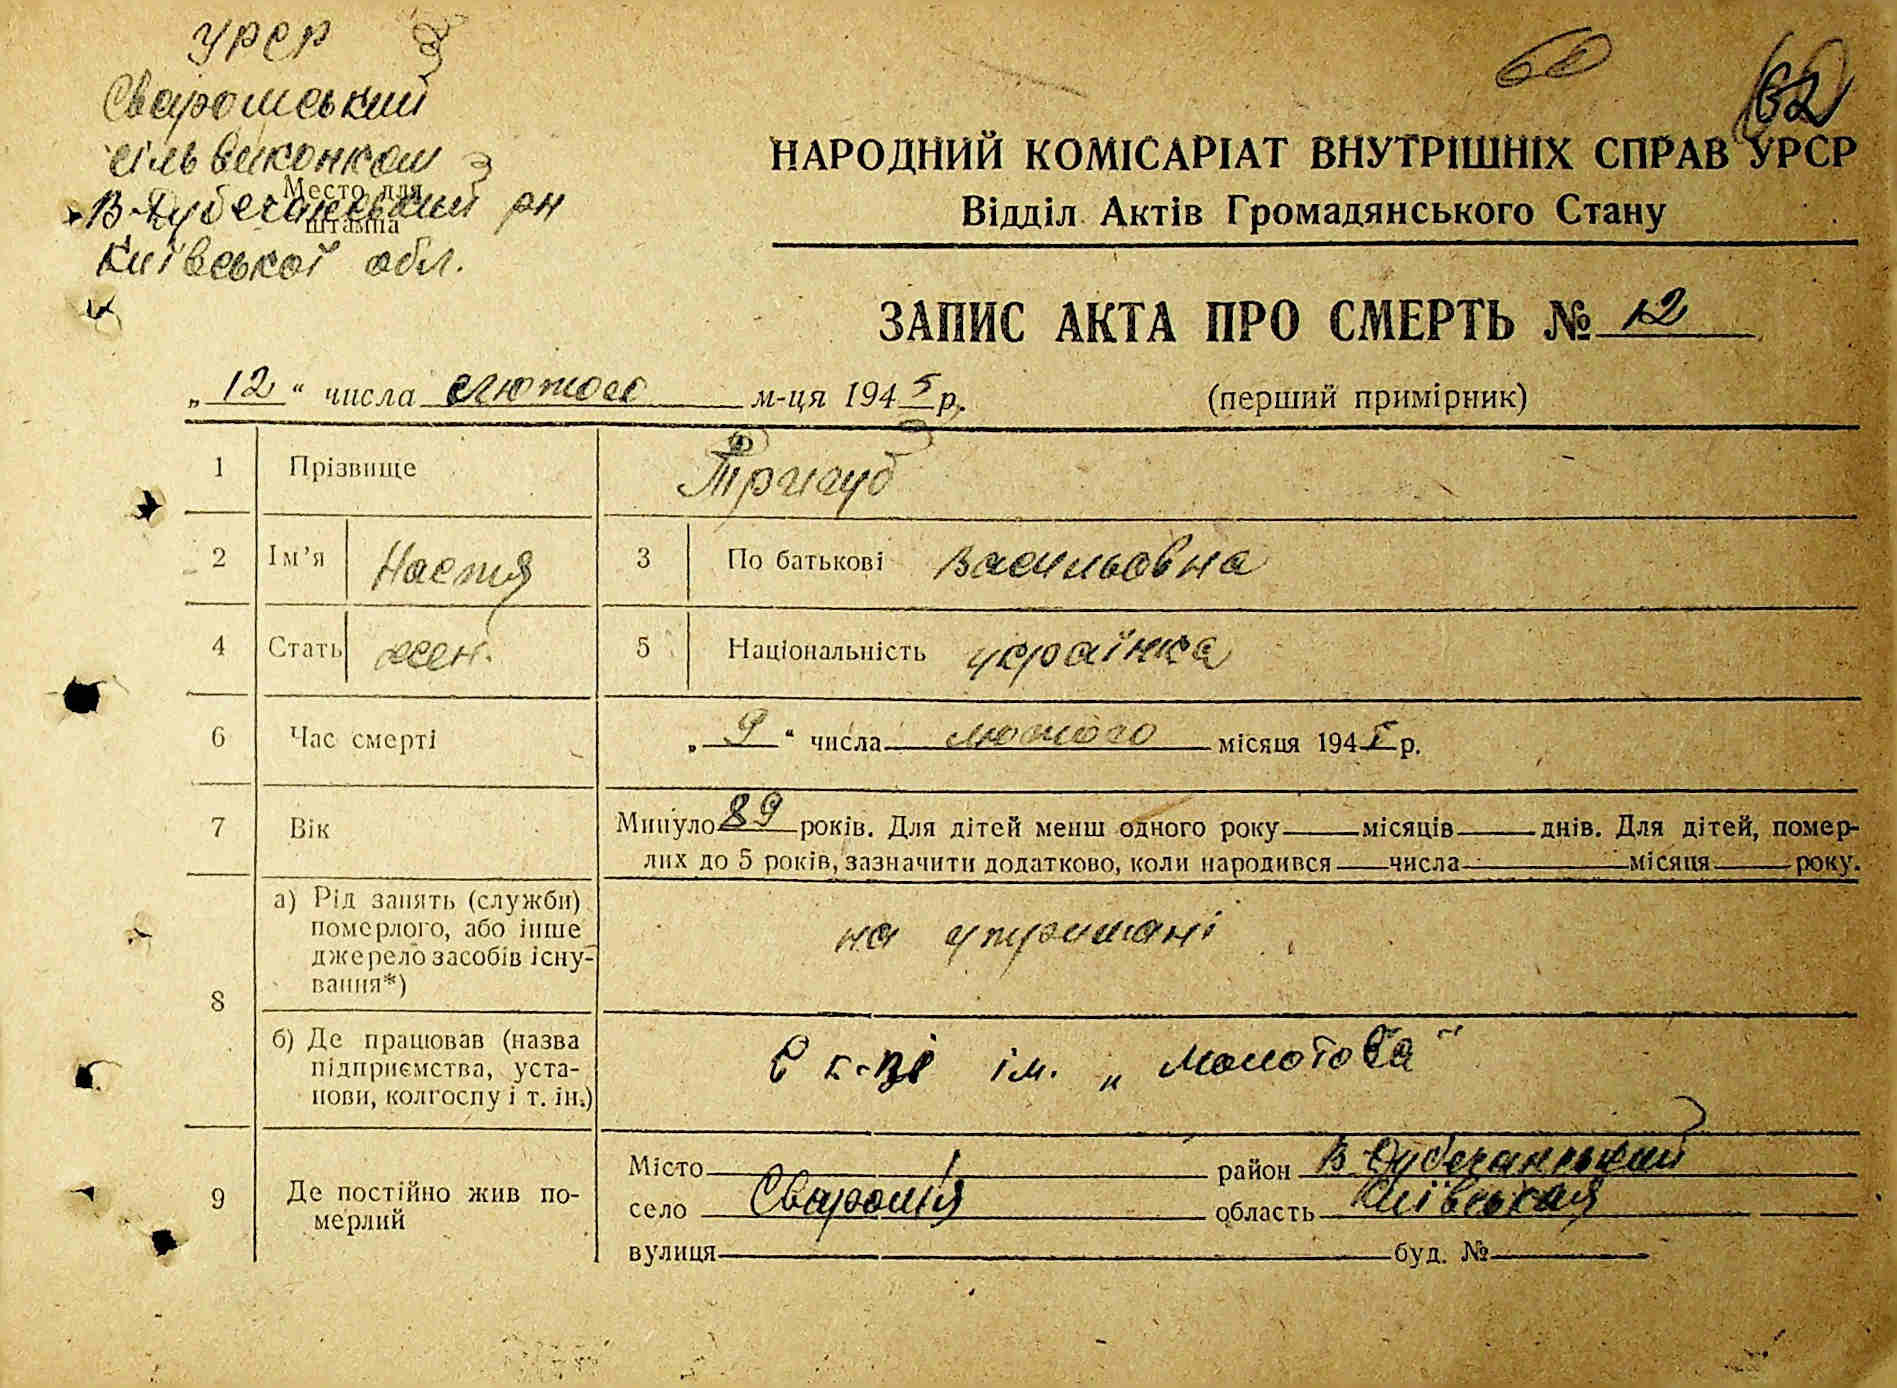 УРСР
Сваромський
сільвиконком
Место для
В-Дубечанський рн
штампа
Київської обл.
62
НАРОДНИЙ КОМІСАРІАТ ВНУТРІШНІХ СПРАВ УРСР
Відділ Актів Громадянського Стану
ЗАПИС АКТА ПРО СМЕРТЬ № 12
„12“ числа лютого м-ця 1945 р. (перший примірник)
1 Прізвище Тригуб
2 Ім’я Настя 3 По батькові Васильовна
4 Стать жен. 5 Національність українка
6 Час смерті „9“ числа лютого місяця 1945 р.
7 Вік Минуло 89 років. Для дітей менш одного року місяців днів. Для дітей, помер-
лих до 5 років, зазначити додатково, коли народився числа місяця року.
8 а) Рід занять (служби) померлого, або інше джерело засобів існу-вання*) на утримані
б) Де працював (назва підприємства, уста-нови, колгоспу і т. ін.) в к-пі ім. „Молотова"
9 Де постійно жив по-мерлий
Місто район В-Дубечанський
село Сваромія область Київськая
вулиця буд. №